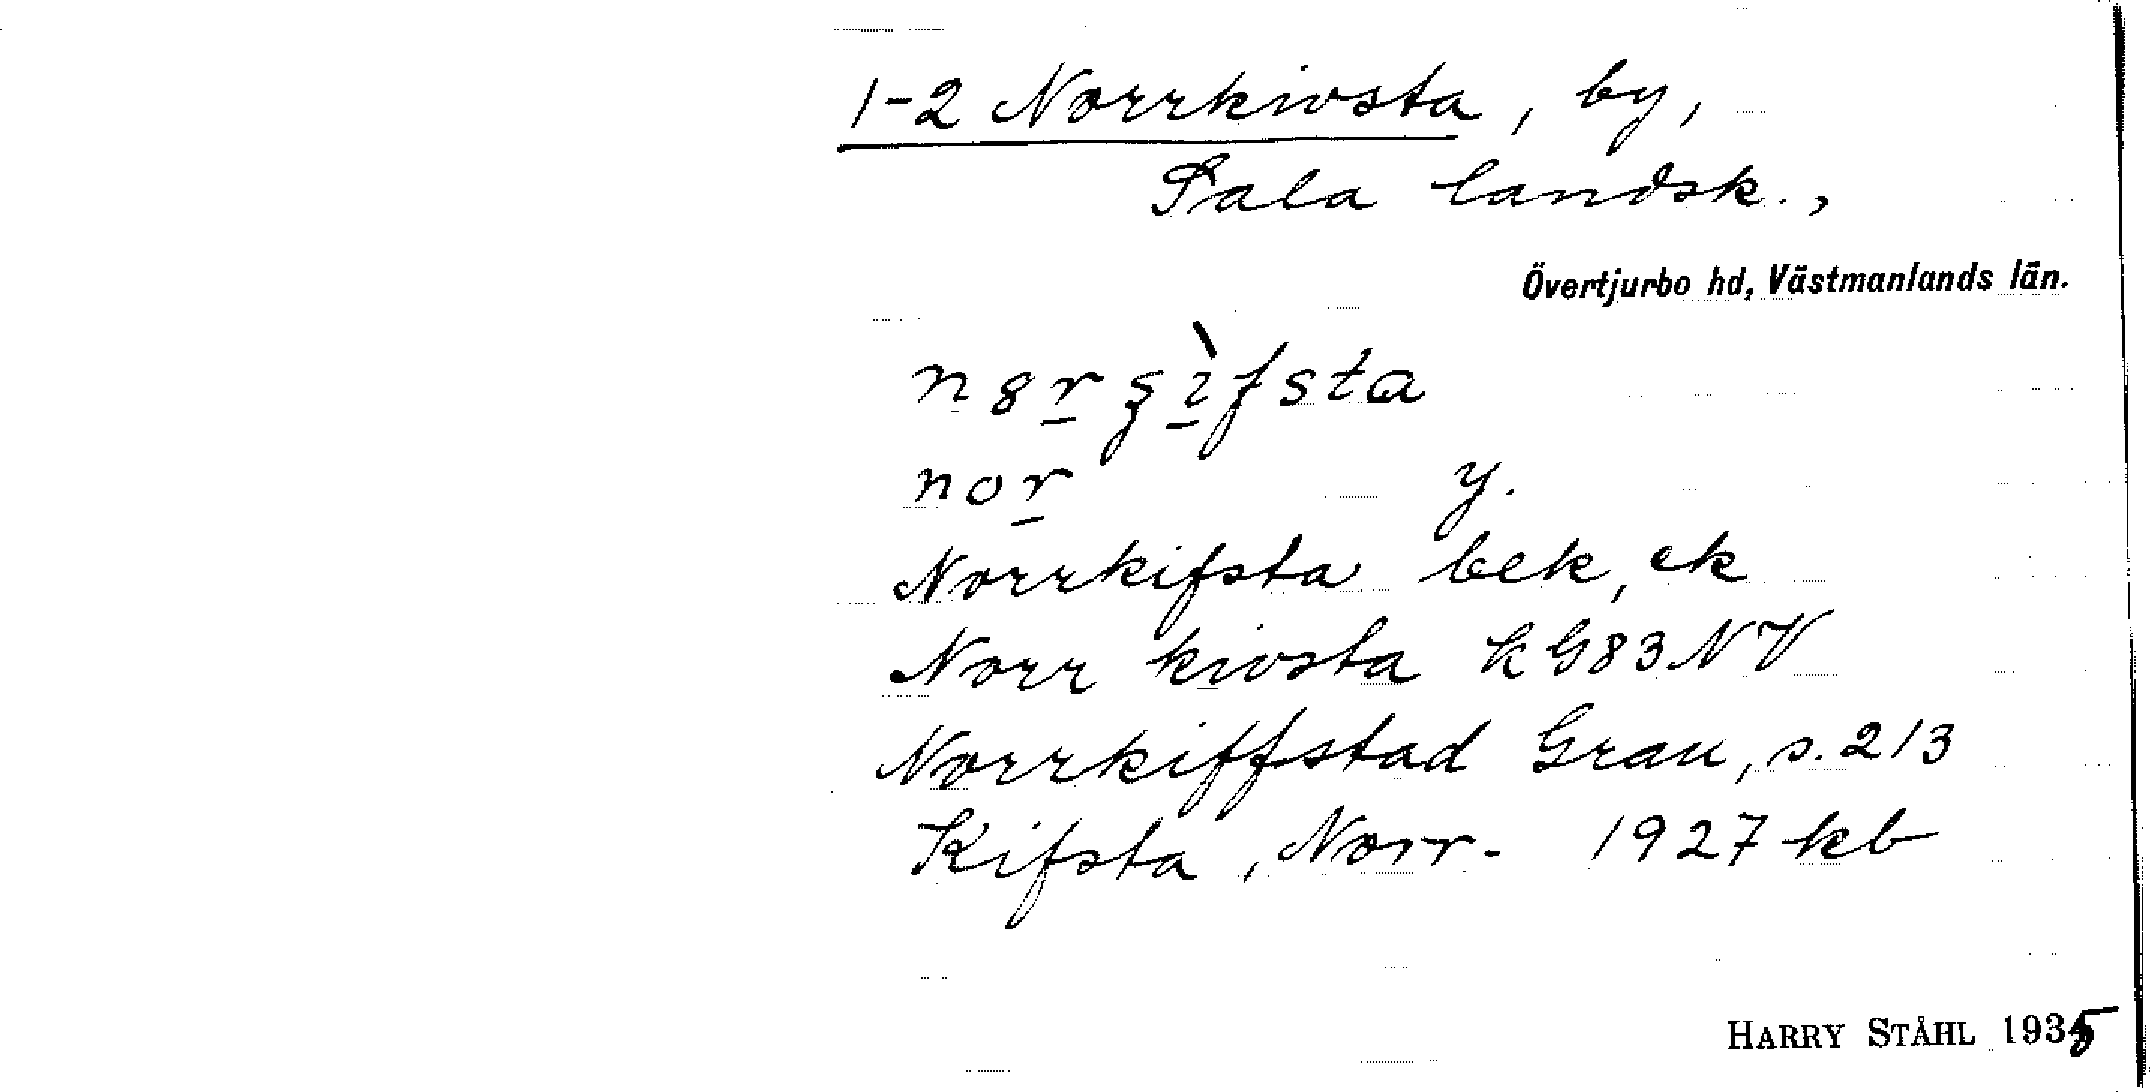 1-2 Norrkivsta, by,
Sala landsk.,
Övertjurbo hd, Västmanlands län.
nor y.
Norrkifsta bek, ek
Norr kivsta kG83NV
Norrkiffstad Grau, s. 213
Kifsta, Norr- 1927 kb
HARRY STÅHL 1935